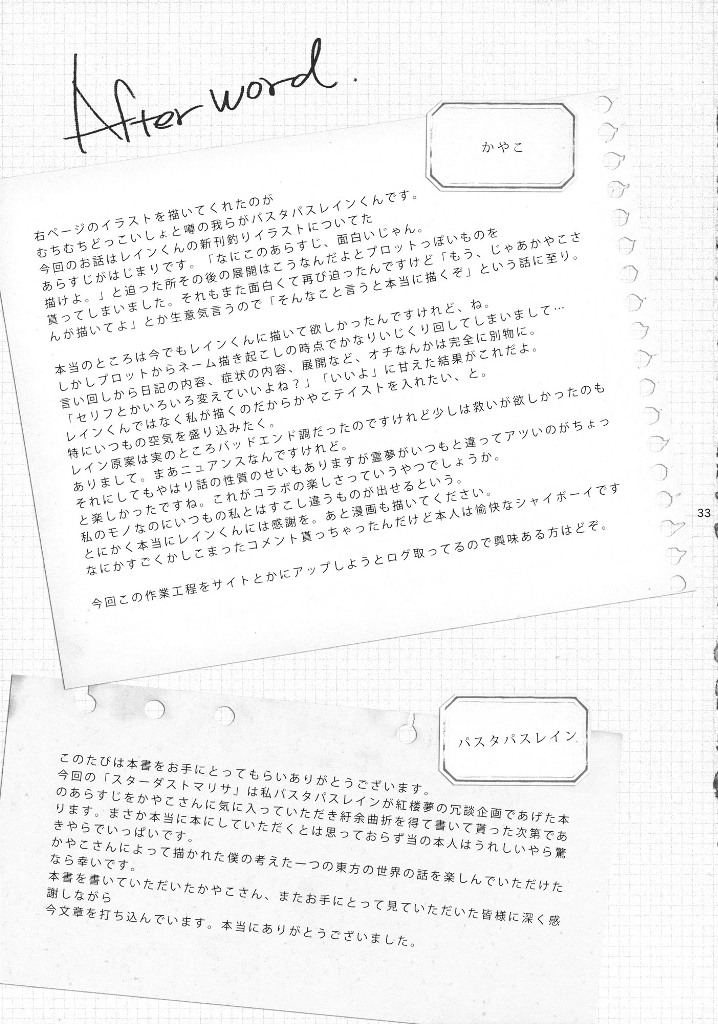 After word.
かやこ
右ページのイラストを描いてくれたのが
むちむちどっこいしょと噂の我らがパスタパスレインくんです。
今回のお話はレインくんの新刊釣りイラストについてた
あらすじがはじまりです。「なにこのあらすじ、面白いじゃん。
描けよ。」と迫った所その後の展開はこうなんだよとプロットっぽいものを
貰ってしまいました。それもまた面白くて再び迫ったんですけど「もう、じゃあかやこさ
んが描いてよ」とか生意気言うので「そんなこと言うと本当に描くぞ」という話に至り。
本当のところは今でもレインくんに描いて欲しかったんですけれど、ね。
しかしプロットからネーム描き起こしの時点でかなりいじくり回してしまいまして…
言い回しから日記の内容、症状の内容、展開など、オチなんかは完全に別物に。
「セリフとかいろいろ変えていいよね？」「いいよ」に甘えた結果がこれだよ。
レインくんではなく私が描くのだからかやこテイストを入れたい、と。
特にいつもの空気を盛り込みたく。
レイン原案は実のところバッドエンド調だったのですけれど少しは救いが欲しかったのも
ありまして。まあニュアンスなんですけれど。
それにしてもやはり話の性質のせいもありますが霊夢がいつもと違ってアツいのがちょっ
と楽しかったですね。これがコラボの楽しさっていうやつでしょうか。
私のモノなのにいつもの私とはすこし違うものが出せるという。
とにかく本当にレインくんには感謝を。あと漫画も描いてください。
なにかすごくかしこまったコメント貰っちゃったんだけど本人は愉快なシャイボーイです
今回この作業工程をサイトとかにアップしようとログ取ってるので興味ある方はどぞ。
33
パスタパスレイン
このたびは本書をお手にとってもらいありがとうございます。
今回の「スターダストマリサ」は私パスタパスレインが紅楼夢の冗談企画であげた本
のあらすじをかやこさんに気に入っていただき紆余曲折を得て書いて貰った次第であ
ります。まさか本当に本にしていただくとは思っておらず当の本人はうれしいやら驚
きやらでいっぱいです。
かやこさんによって描かれた僕の考えた一つの東方の世界の話を楽しんでいただけた
なら幸いです。
本書を書いていただいたかやこさん、またお手にとって見ていただいた皆様に深く感
謝しながら
今文章を打ち込んでいます。本当にありがとうございました。